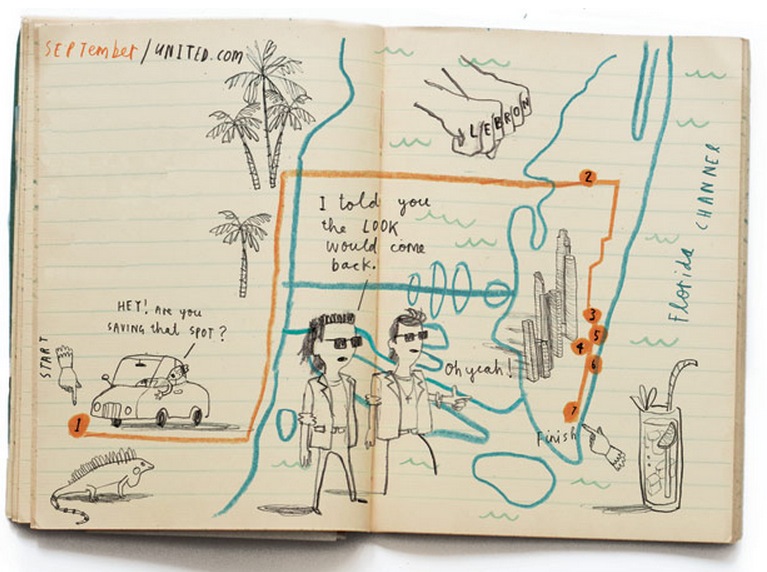 SEPTEMBER/UNITED.COM
LEBRON
2
I told you
the LOOK
would come
back.
Florida CHANNER
HEY! Are you
SAVING that SPOT?
START
3
5
4
6
Oh yeah!
1
7
Finish